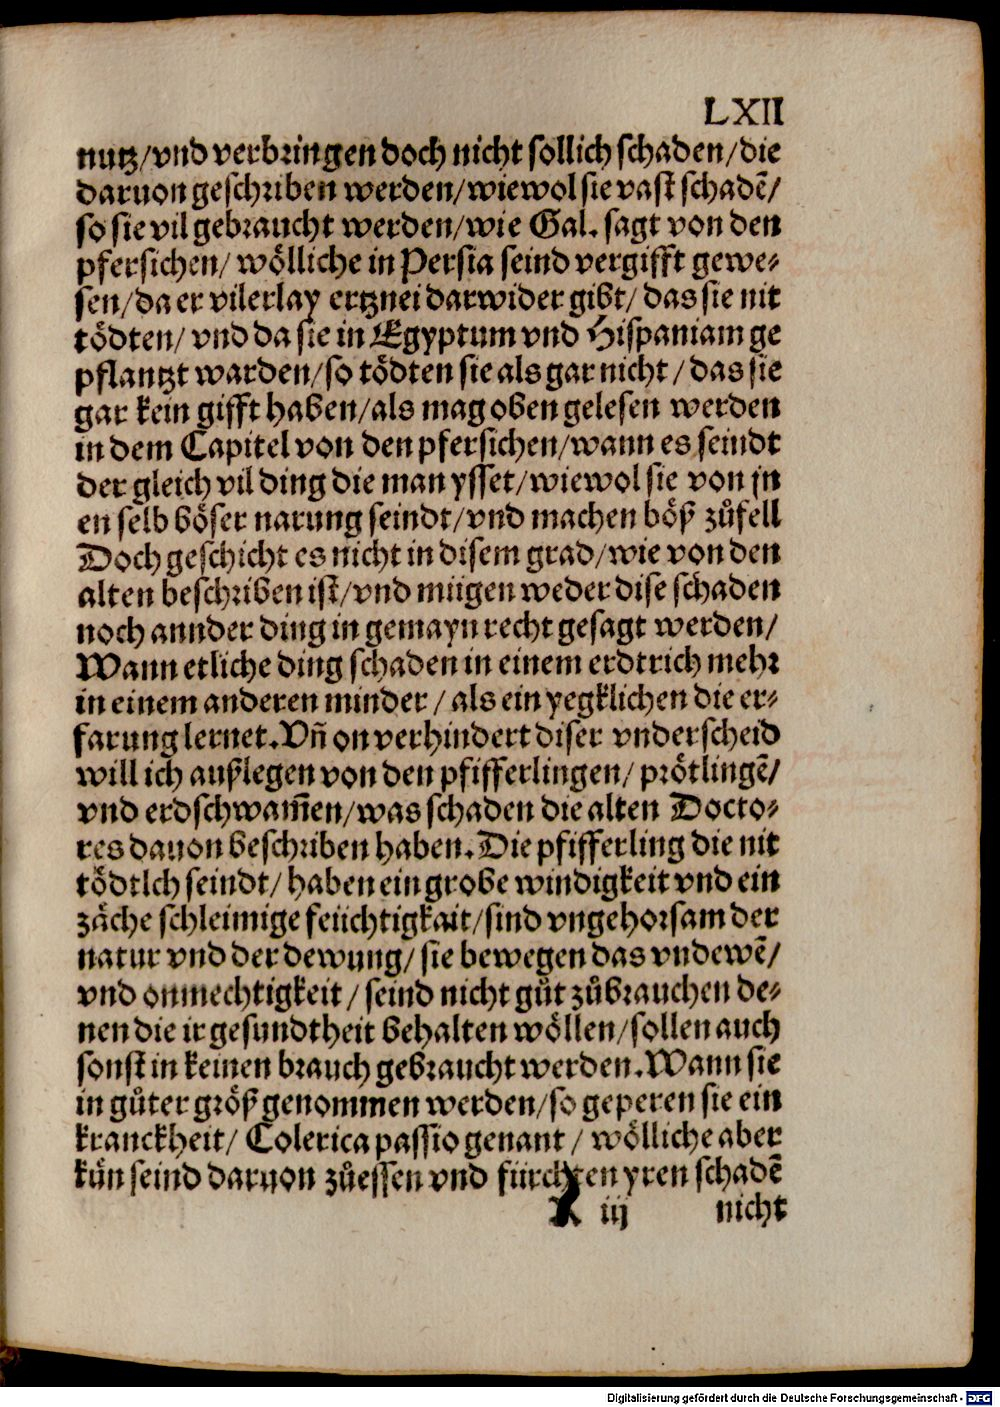 LXII
nutz/vnd verbringen doch nicht sollich schaden/die
daruon geschriben werden/wiewol sie vast schadẽ/
so sie vil gebraucht werden/wie Gal. sagt von den
pfersichen/ wölliche in Persia seind vergifft gewe-
sen/da er vilerlay ertznei darwider gibt/ das sie nit
tödten/ vnd da sie in Egyptum vnd Hispaniam ge
pflantzt warden/so tödten sie als gar nicht/das sie
gar kein gifft haben/als mag oben gelesen werden
in dem Capitel von den pfersichen/wann es seindt
der gleich vil ding die man ysset/wiewol sie von jn
en selb böser narung seindt/vnd machen böß zůfell
Doch geschicht es nicht in disem grad/wie von den
alten beschriben ist/vnd mügen weder dise schaden
noch annder ding in gemayn recht gesagt werden/
Wann etliche ding schaden in einem erdtrich mehr
in einem anderen minder/als ein yegklichen die er-
farung lernet. Vñ on verhindert diser vnderscheid
will ich außlegen von den pfifferlingen/ prötlingẽ/
vnd erdschwam̃en/was schaden die alten Docto-
res dauon beschriben haben. Die pfifferling die nit
tödtlch seindt/ haben ein grobe windigkeit vnd ein
zäche schleimige feüchtigkait/sind vngehorsam der
natur vnd der dewung/ sie bewegen das vndewẽ/
vnd onmechtigkeit/ seind nicht gůt zůbrauchen de-
nen die ir gesundtheit behalten wöllen/sollen auch
sonst in keinen brauch gebraucht werden. Wann sie
in gůter größ genommen werden/so geperen sie ein
kranckheit/ Colerica passio genant/ wölliche aber
kün seind daruon zůessen vnd fürchten yren schadẽ
K iij nicht
Digitalisierung gefördert durch die Deutsche Forschungsgemeinschaft - DFG